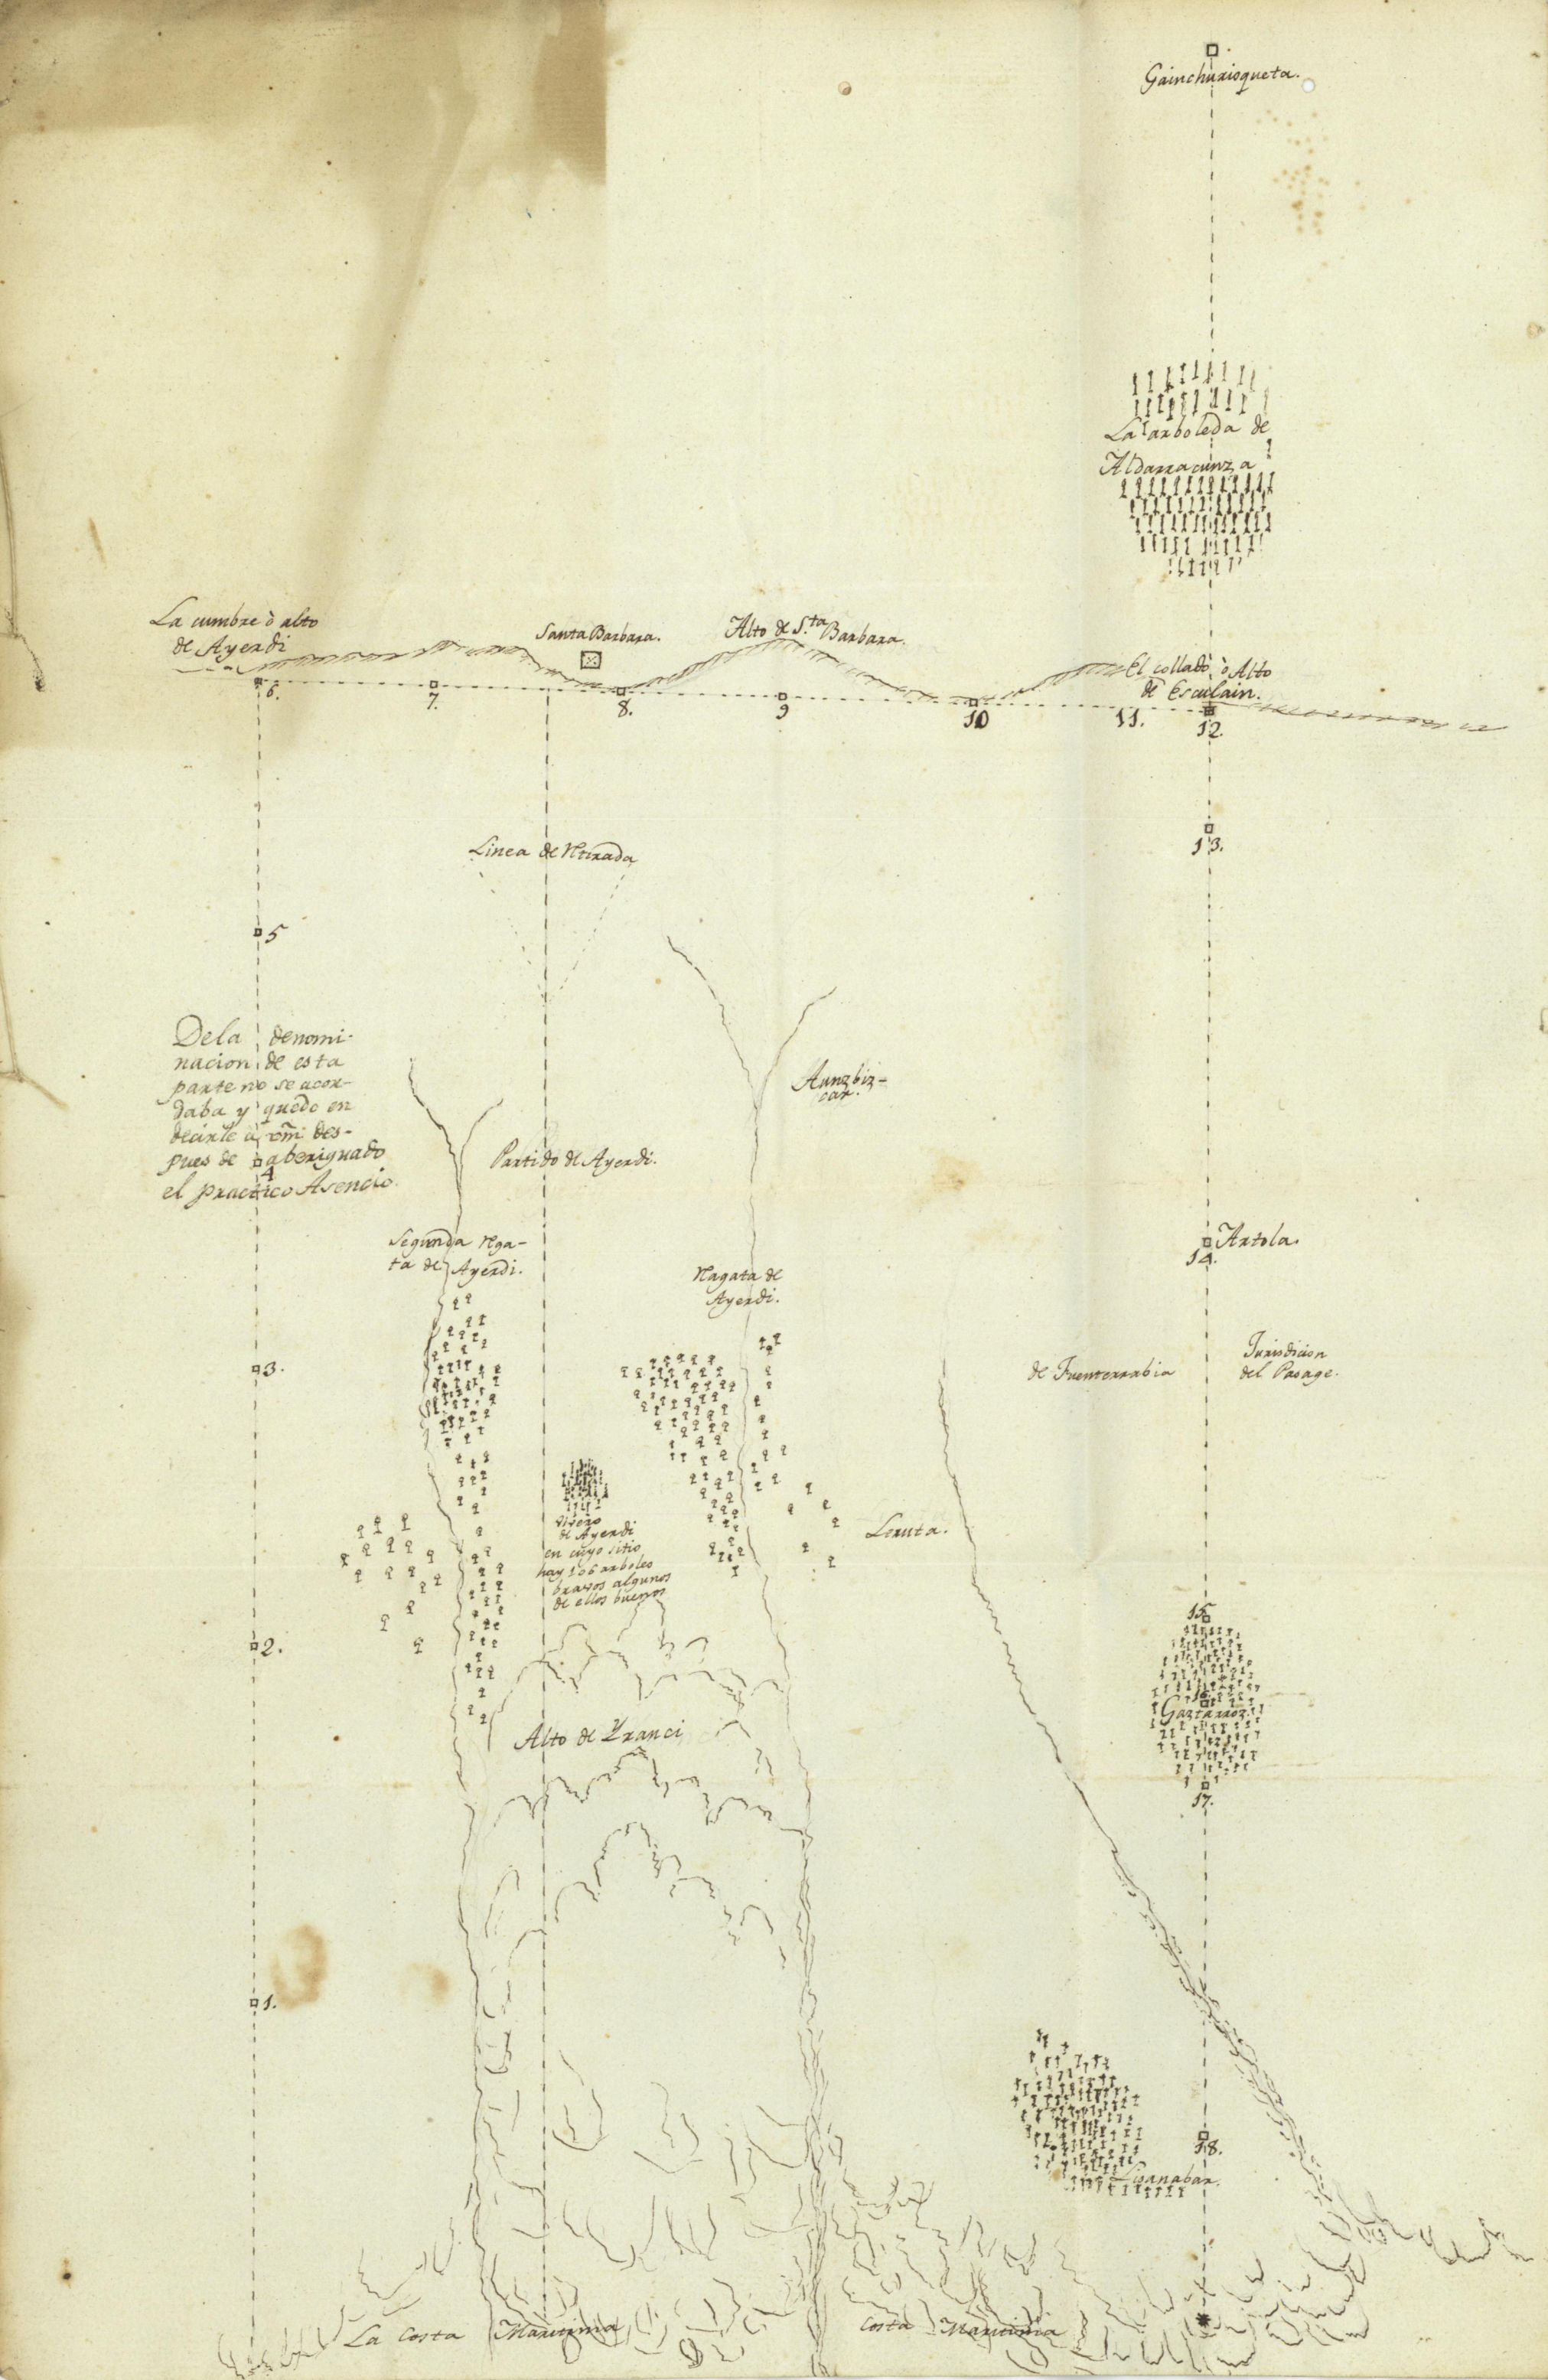 Gainchurisqueta.
La arboleda de
Aldarracunza
La cumbre ò alto
de Ayerdi
Santa Barbara.
Alto de S.ta Barbara.
El collado, ò Alto
de Esculain.
6.
7.
8.
9
10
11.
12.
13.
Linea de Rtirada
5
Dela denomi-
nacion de esta
parte no se acor-
daba y quedo en
decirle a vm̃ des-
pues de aberiguado
4
el practico Asencio.
Aunzbiz-
car.
Partido de Ayerdi.
Segunda Rga-
ta de Ayerdi.
Ragata de
Ayerdi.
Artola.
14.
3.
de Fuenterrabia
Jurisdicion
del Pasage.
vivero
de Ayerdi
en cuyo sitio
hay 106 arboles
bravos algunos
de ellos buenos
Leruta.
15
2.
16
Gaztarroz.
Alto de Yranci
17.
1.
18.
Lisanabar.
La Costa Maritima
Costa Maritima